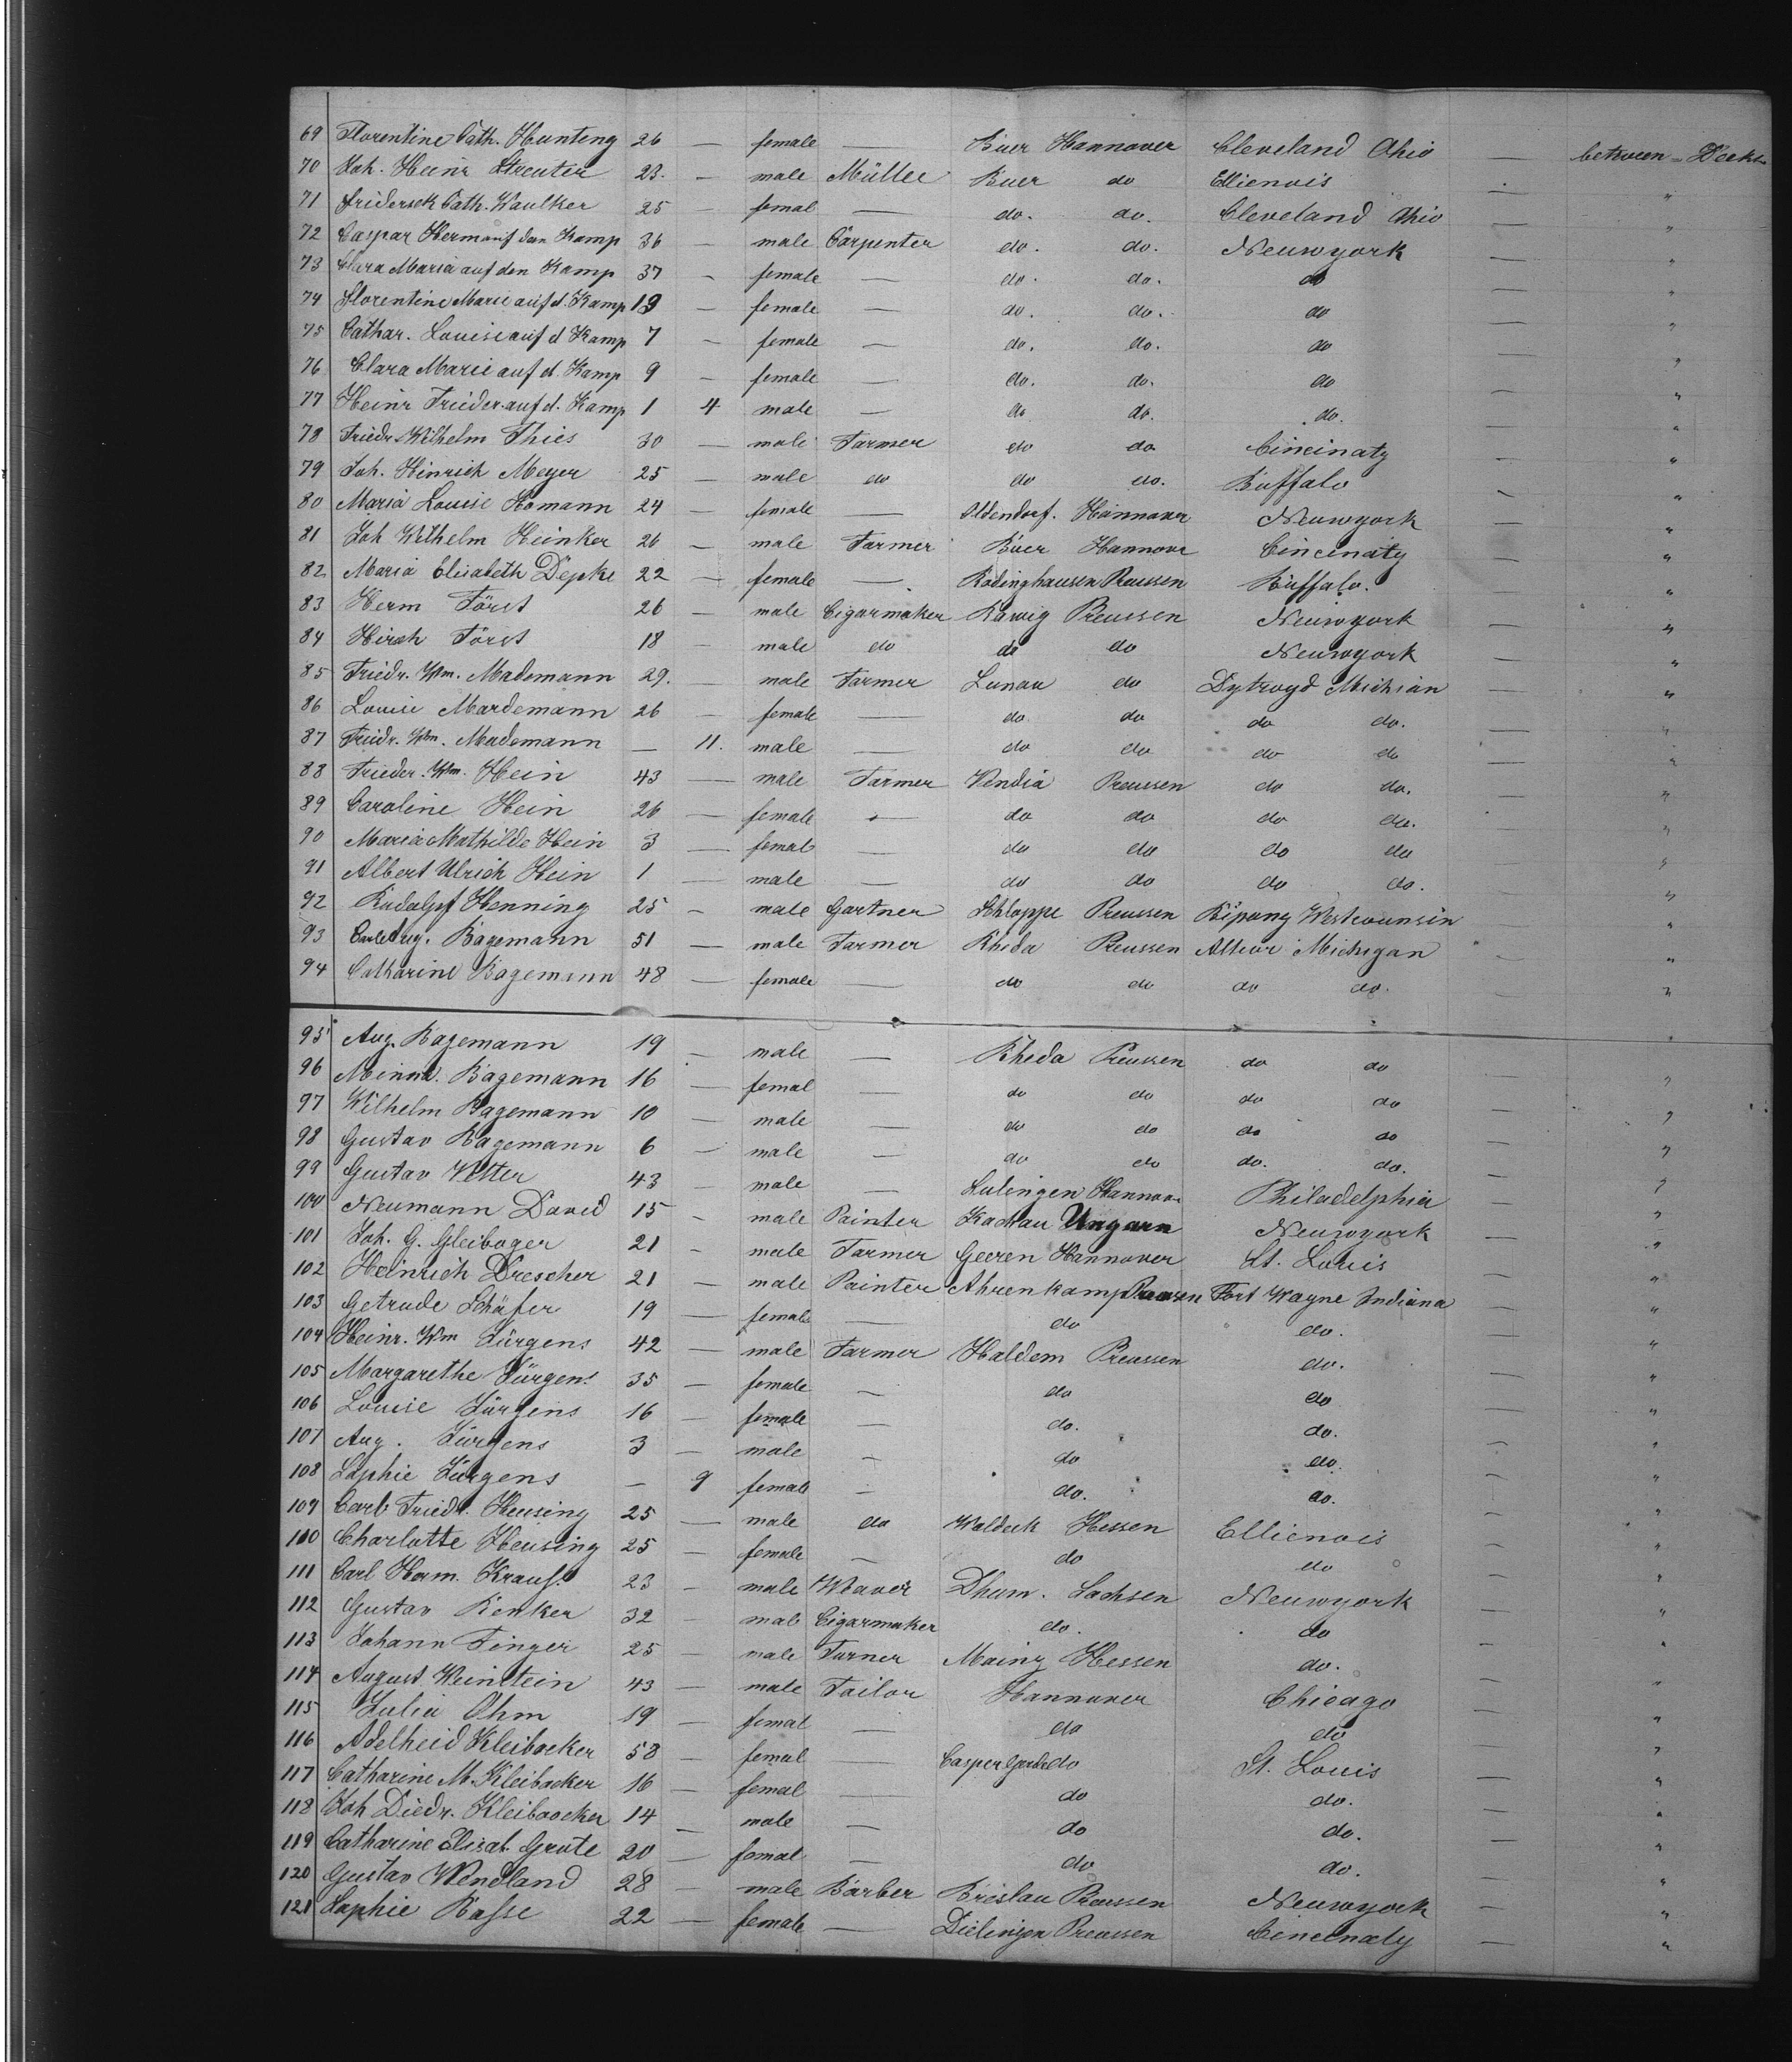 69 Florentine Cath. Hunteng 26 — female — Buer Hannover Cleveland Ohio — between Decks
70 Joh. Heinr Streuter 23. — male Müller Buer do Ellienois - "
71 Fridersek Cath. Waulker 25 — femal — do. do. Cleveland Ohio — "
72 Caspar Herm auf den Kamp 36 — male Carpenter do. do. Neuwyork — "
73 Clara Maria auf den Kamp 37 - female — do. do. do — "
74 Florentine Marie auf d. Kamp 19 - female — do. do. do — "
75 Cathar. Louise auf d Kamp 7 - female — do. do. do — "
76 Clara Marie auf d. Kamp 9 - female — do. do. do — "
77 Heinr Frieder. auf d. Kamp 1 4 male — do do. do. — "
78 Friedr. Wilhelm Thies 30 — male Farmer do do Cincinaty — "
79 Joh. Hinrich Meyer 25 — male do do do. Buffalo — "
80 Maria Louise Homann 24 — female — Oldendorf. Hannover Neuwyork — "
81 Joh Wilhelm Heinker 26 — male Farmer Buer Hannover Cincinaty — "
82 Maria Elisabeth Depke 22 — female — Rödinghausen Preussen Buffalo. — "
83 Herm Först 26 — male Cigarmaker Rawig Preussen Neuwyork — "
84 Hirsh Först 18 — male do do do Neuwyork — "
85 Friedr. Wm. Mademann 29. — male Farmer Lunau do Dytroyd Michian — "
86 Louise Mardemann 26 — female — do do do do. — "
87 Friedr. Wm. Mademann — 11. male — do do do do — "
88 Frieder. Wm. Hein 43 — male Farmer Wendia Preussen do do. — "
89 Caroline Hein 26 — female — do do do do. — "
90 Maria Mathilde Hein 3 — femal — do do do do — "
91 Albert Ulrich Hein 1 — male — do do do do. — "
92 Rudolpf Henning 25 - male Gartner Schloppe Preussen Ripong Westcounsin — "
93 Carl Aug. Bagemann 51 — male Farmer Rheda Preussen Altwor Michigan — "
94 Catharine Bagemann 48 — female — do do do do. — "
95 Aug. Bagemann 19 — male — Rheda Preussen do do — "
96 Minna. Bagemann 16 — femal — do do do do — "
97 Wilhelm Bagemann 10 — male — do do do do — "
98 Gustav Bagemann 6 — male — do do do. do. — "
99 Gustav Vetter 43 — male — Sulingen Hannover Philadelphia — "
100 Neumann David 15 - male Painter Kachau Ungarn Neuwyork — "
101 Joh. G. Gleiboger 21 — male Farmer Geeren Hannover St. Louis — "
102 Heinrich Drescher 21 — male Painter Ahrenkamp Preussen Fort Wayne Indiana — "
103 Getrude Schäfer 19 — female — do do. — "
104 Heinr. Wm Jürgens 42 — male Farmer Haldem Preussen do. — "
105 Margarethe Jürgens 35 — female — do do — "
106 Louise Jürgens 16 — female — do. do. — "
107 Aug. Jürgens 3 — male — do do. — "
108 Sophie Jürgens — 9 femal — do. do. — "
109 Carl Friedr. Heusing 25 — male do Waldeck Hessen Ellienois — "
110 Charlotte Heusing 25 — female — do do — "
111 Carl Herm. Krauß. 23 — male Weaver Dhum. Sachsen Neuwyork — "
112 Gustav Renker 32 — male Cigarmaker do. do — "
113 Johann Finger 25 — male Turner Mainz Hessen do. — "
114 August Weinstein 43 — male Tailor Hannover Chicago — "
115 Julia Ohm 19 — femal — do do — "
116 Adelheid Kleibocker 58 — femal — Casper do St. Louis — "
117 Catharine M. Kleibocker 16 — femal — do do. — "
118 Joh Diedr. Kleiboocker 14 — male — do do. — "
119 Catharine Elisab. Grote 20 — femal — do do. — "
120 Gustav Wendland 28 — male Barber Breslau Preussen Neuwyork — "
121 Sophie Basse 22 — female — Dielingen Preussen Cincinaty — "